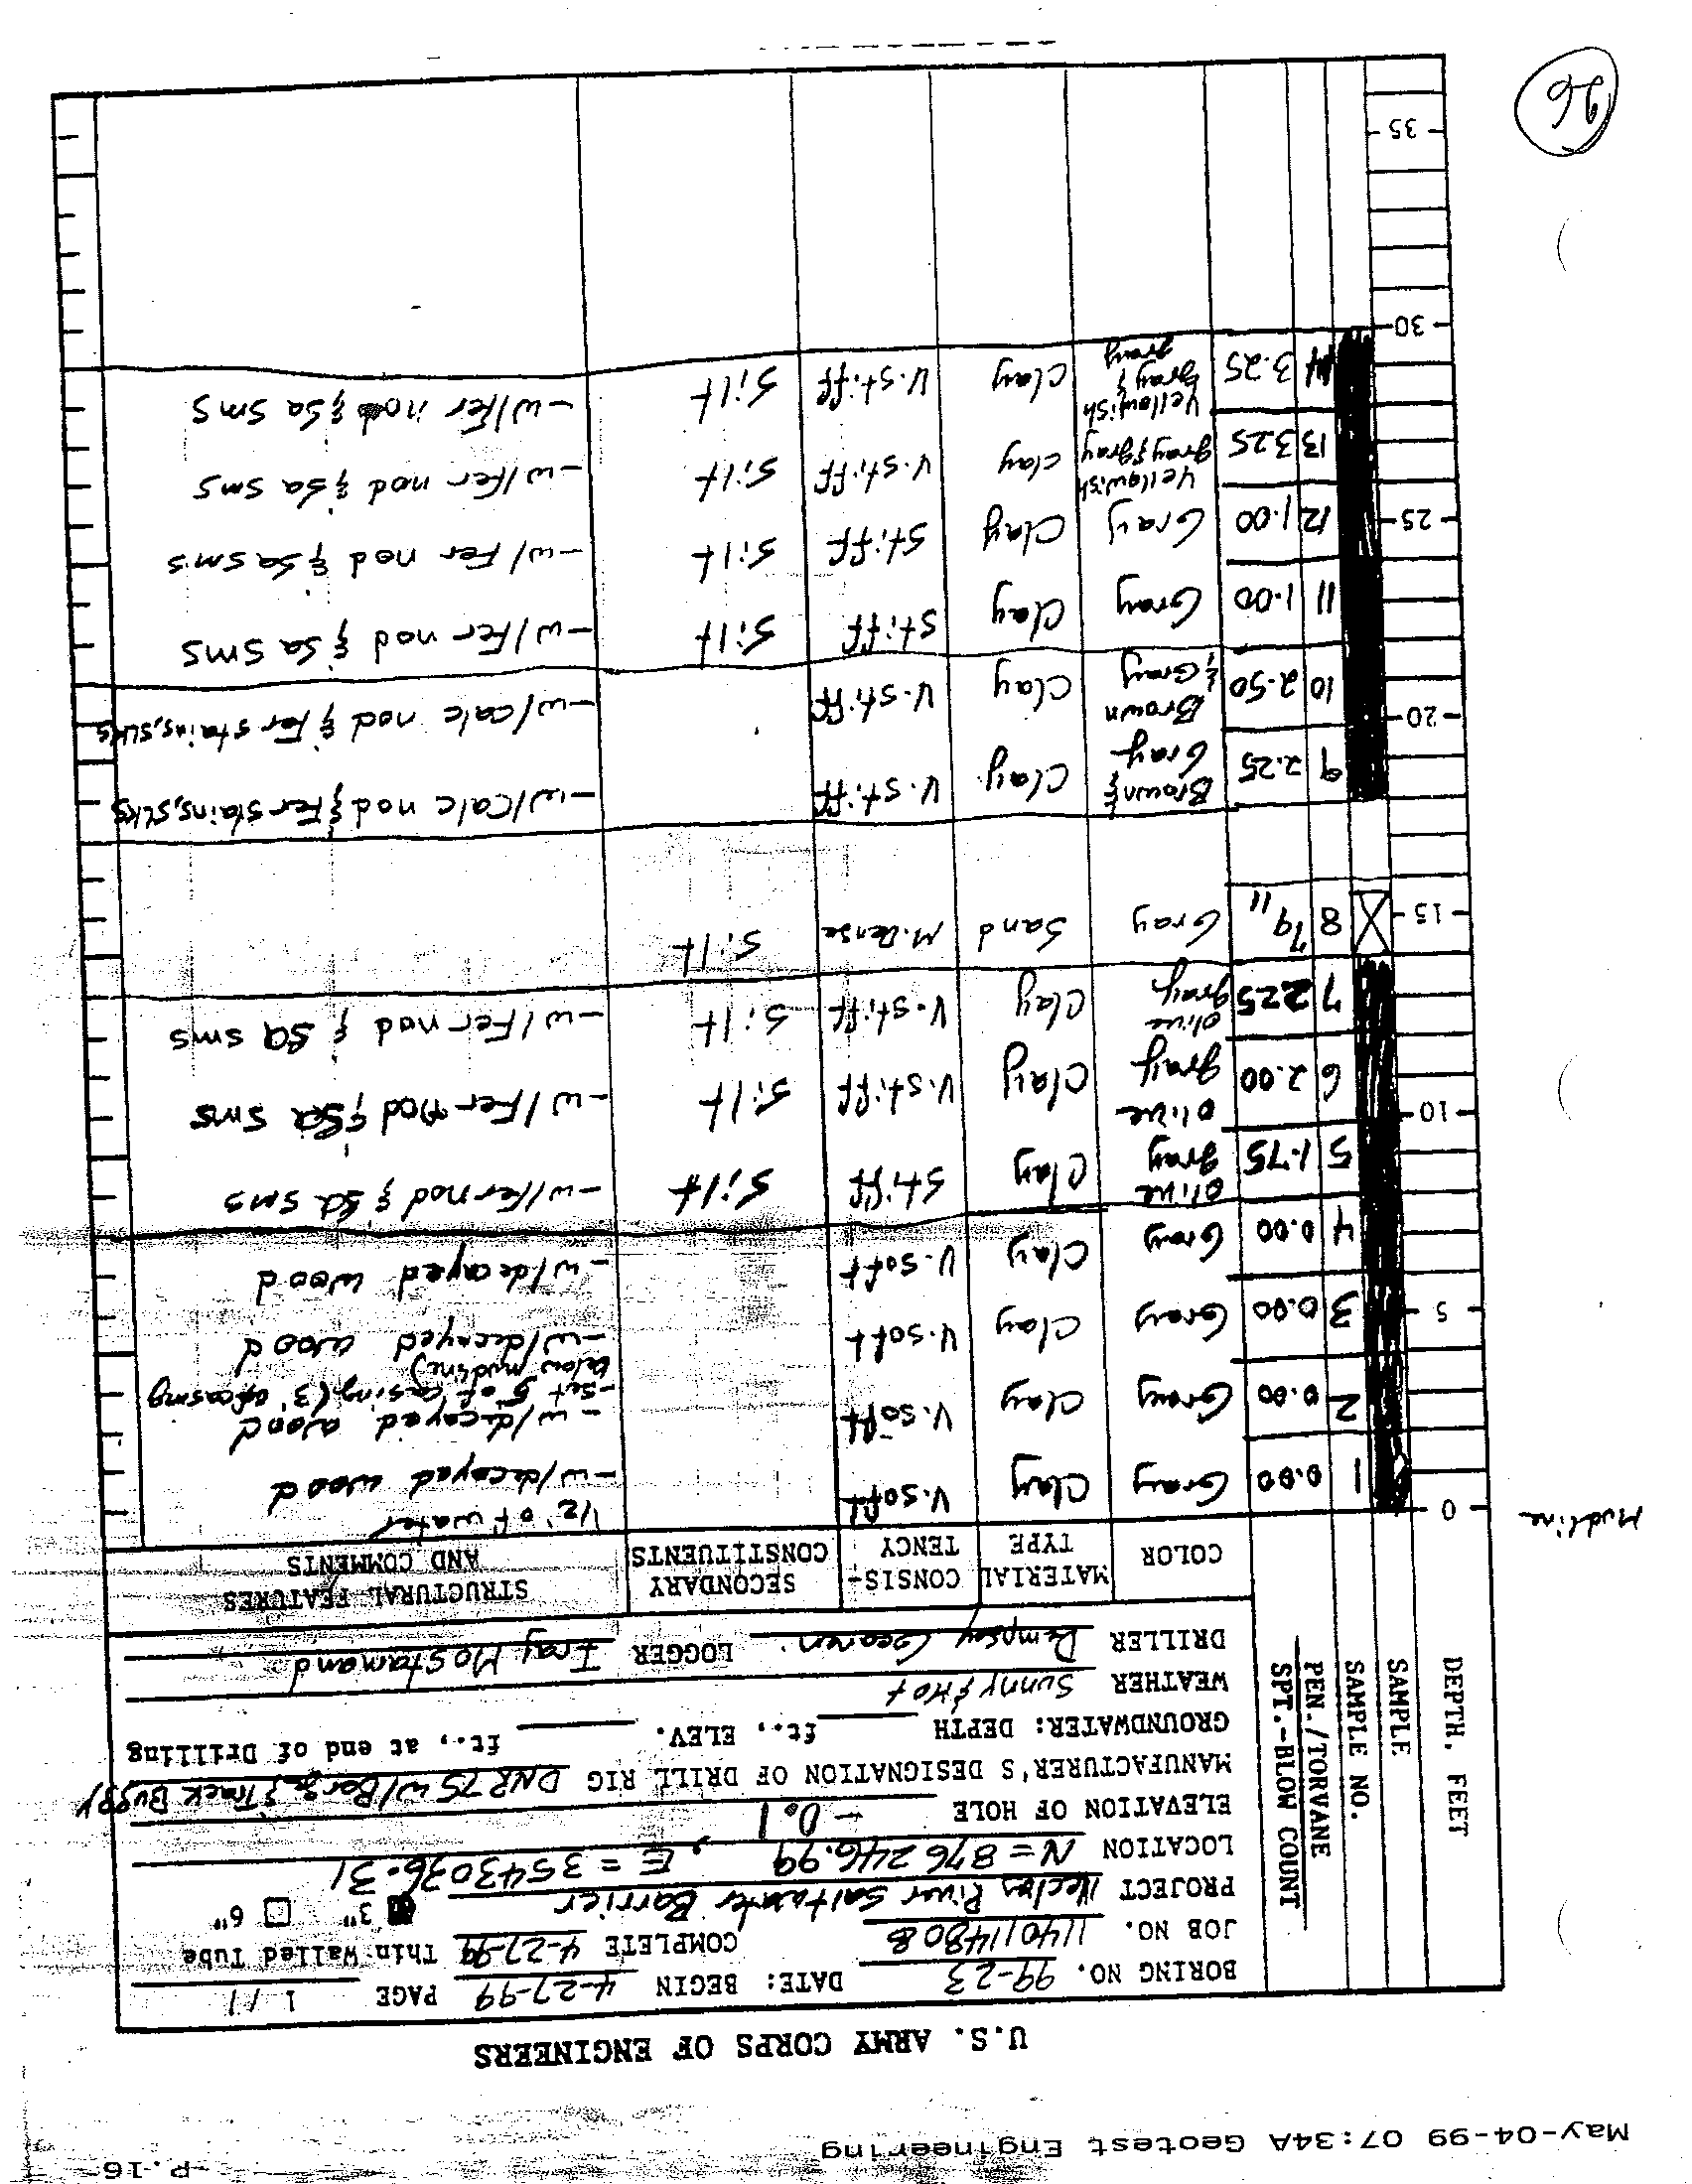 May-04-99 07:34A Geotest Engineering P.16
U.S. ARMY CORPS OF ENGINEERS
BORING NO. 99-23 DATE: BEGIN 4-27-99 PAGE 1 / 1
JOB NO. 1140114808 COMPLETE 4-27-99 Thin Walled Tube
PROJECT Neches River Saltwater Barrier 3" 6"
LOCATION N = 876246.99, E = 3543036.31
ELEVATION OF HOLE -0.1
MANUFACTURER'S DESIGNATION OF DRILL RIG DNR 75 w/Barge & Track Buggy
GROUNDWATER: DEPTH ft., ELEV. ft., at end of Drilling
WEATHER Sunny & Hot
DRILLER Dempsey LOGGER Iray Mostamand
DEPTH, FEET
SAMPLE
SAMPLE NO.
PEN./TORVANE
SPT.-BLOW COUNT
COLOR
MATERIAL TYPE
CONSIS-TENCY
SECONDARY CONSTITUENTS
STRUCTURAL FEATURES AND COMMENTS
Mudline 0
1/2' of water
1 0.00 Gray Clay V.soft -w/decayed wood
2 0.00 Gray Clay V.soft -w/decayed wood
-set 5' of casing (3' of casing
below mudline)
5 3 0.00 Gray Clay V.soft -w/decayed wood
4 0.00 Gray Clay V.soft -w/decayed wood
5 1.75 olive gray Clay Stiff Silt -w/fer nod & sa sms
10 6 2.00 olive gray Clay V.stiff Silt -w/Fer nod & sa sms
7 2.25 olive gray Clay V.stiff Silt -w/Fer nod & sa sms
15 8 7 9 11 Gray Sand M.Dense Silt
9 2.25 Brown & Gray Clay V.stiff -w/Calc nod & Fer stains, slks
20 10 2.50 Brown & Gray Clay V.stiff -w/calc nod & Fer stains, slks
11 1.00 Gray Clay Stiff Silt -w/Fer nod & sa sms
25 12 1.00 Gray Clay Stiff Silt -w/Fer nod & sa sms
13 3.25 Yellowish gray & gray Clay V.stiff Silt -w/fer nod & sa sms
14 3.25 Yellowish gray & gray Clay V.stiff Silt -w/fer nod & sa sms
30
35
26